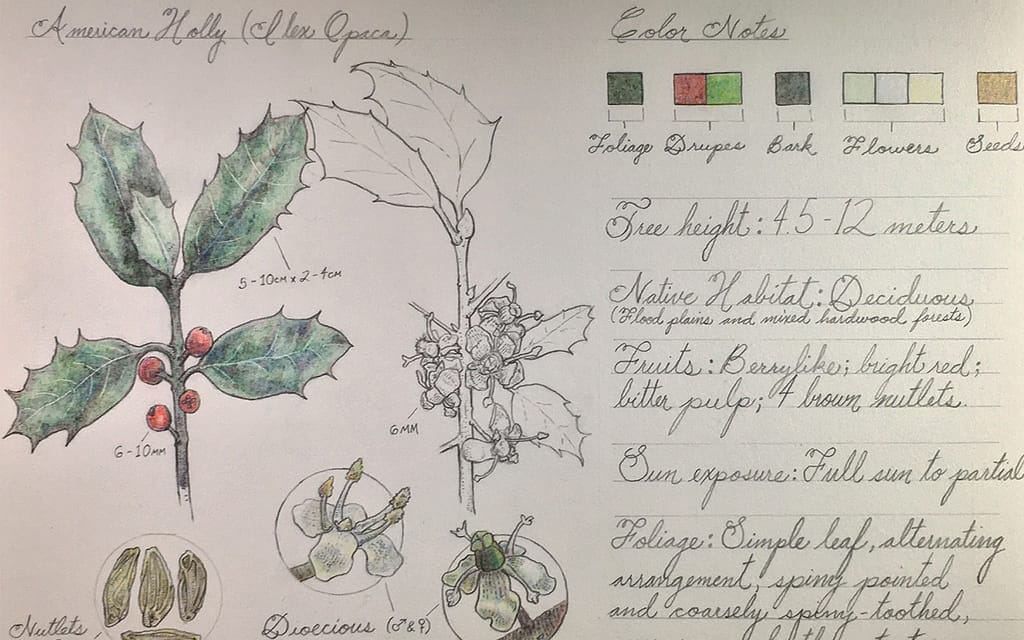 American Holly (Ilex Opaca)
5-10cm x 2-4cm
6-10mm
6mm
Nutlets
Dioecious (♂&♀)
Color Notes
Foliage Drupes Bark Flowers Seeds
Tree height: 4.5-12 meters
Native Habitat: Deciduous
(Flood plains and mixed hardwood forests)
Fruits: Berrylike; bright red;
bitter pulp; 4 brown nutlets.
Sun exposure: Full sun to partial
Foliage: Simple leaf, alternating
arrangement, spiny pointed
and coarsely spiny-toothed,